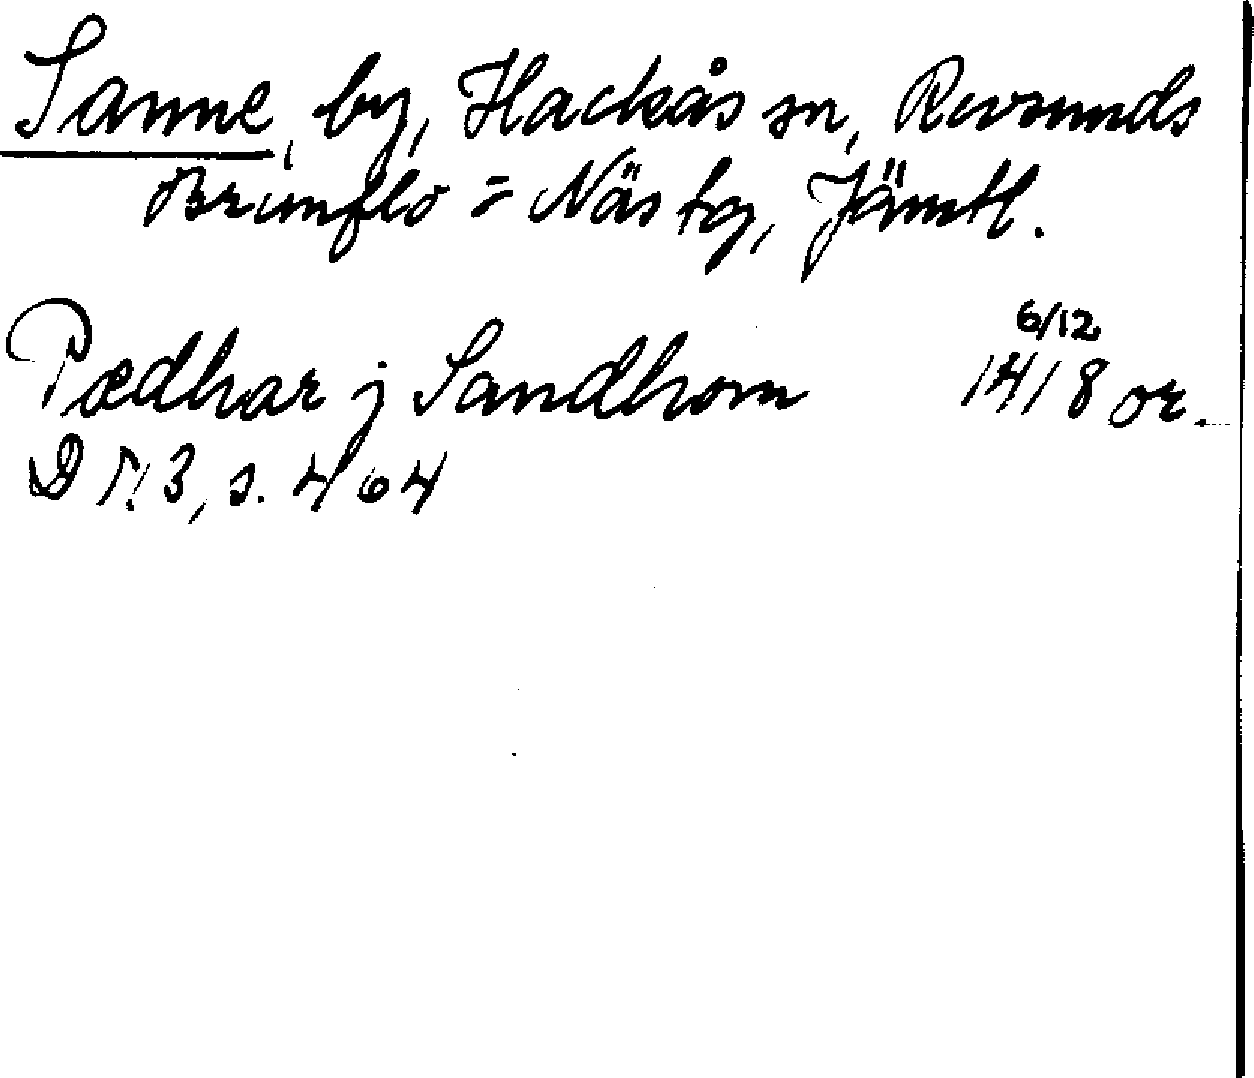 Sanne, by, Hackås sn, Revsunds
Brunflo = Näs tg, Jämtl.
Pædhar j Sandhom 6/12 1418 or.
D N 3, s. 464